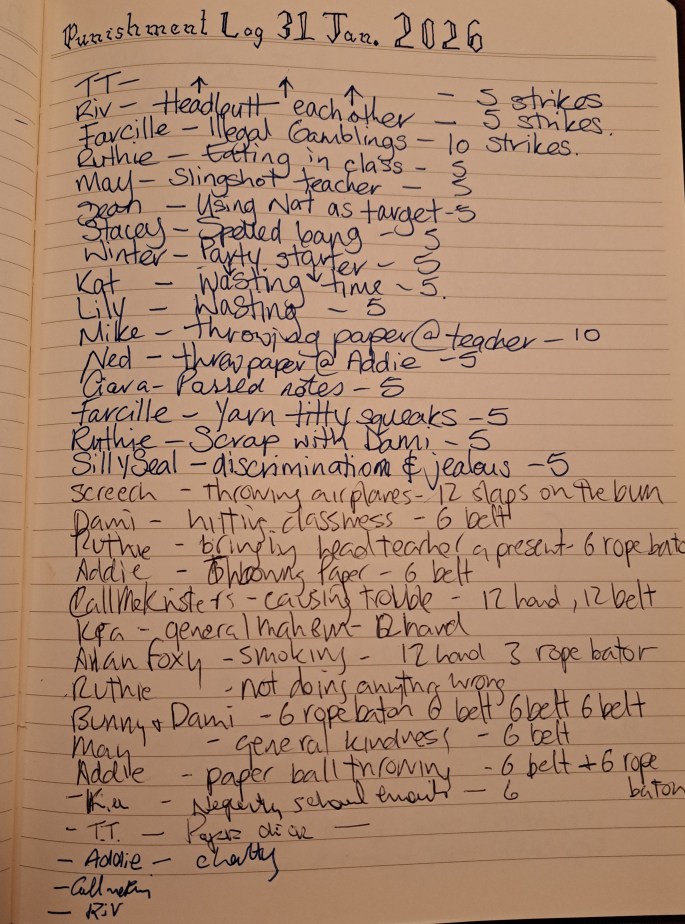 Punishment Log 31 Jan. 2026
TT- ↑ ↑ ↑ - 5 strikes
Riv - Headbutt each other - 5 strikes.
Farcille - Illegal Gamblings - 10 strikes.
Ruthie - Eating in class - 5
May - Slingshot teacher - 5
Sean - Using Nat as target - 5
Stacey - Spelled bang - 5
Winter - Party starter - 5
Kat - Wasting time - 5.
Lily - Wasting - 5
Mike - throwing paper @ teacher - 10
Ned - threw paper @ Addie - 5
Ciara - Passed notes - 5
Farcille - Yarn titty squeaks - 5
Ruthie - Scrap with Dami - 5
SillySeal - discrimination & jealous - 5
Screech - throwing airplanes - 12 slaps on the bum
Dami - hitting - 6 belt
Ruthie - headteacher a present - 6 rope bato
Addie - Paper - 6 belt
- causing trouble - 12 hand, 12 belt
- general - 12 hand
Foxy - smoking - 12 hand 3 rope bator
Ruthie - not doing wrong
Bunny + Dami - 6 rope baton 6 belt 6 belt 6 belt
May - general kindness - 6 belt
Addie - paper ball throwing - 6 belt + 6 rope
baton
- - school - 6
- T.T. - Paper -
- Addie - chatty
- RiV